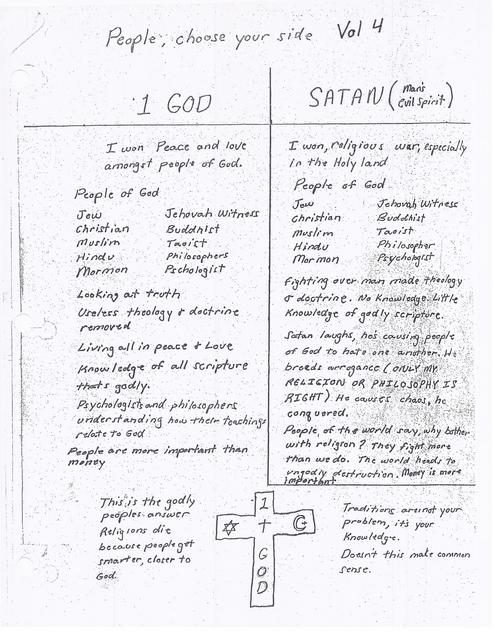 People, choose your side Vol 4
1 GOD
I won Peace and love
amongst people of God.
People of God
Jew Jehovah Witness
Christian Buddhist
Muslim Taoist
Hindu Philosophers
Mormon Pschologist
Looking at truth
Useless theology & doctrine
removed
Living all in peace & Love
Knowledge of all scripture
thats godly.
Psychologist and philosophers
understanding how their teachings
relate to God
People are more important than
money
SATAN (Man's
Evil Spirit)
I won, religious war, especially
in the Holy land
People of God
Jew Jehovah Witness
Christian Buddhist
Muslim Taoist
Hindu Philosopher
Mormon Psychologist
Fighting over man made theology
& doctrine. No Knowledge. Little
Knowledge of godly scripture.
Satan laughs, he's causing people
of God to hate one another. He
breeds arrogance (ONLY MY
RELIGION OR PHILOSOPHY IS
RIGHT). He causes chaos, he
conquered.
People of the world say, why bother
with religion? They fight more
than we do. The world heads to
ungodly destruction. Money is more
important
This is the godly
peoples answer
Religions die
because people get
smarter, closer to
God.
1
G
O
D
Traditions are not your
problem, it's your
Knowledge.
Doesn't this make common
sense.